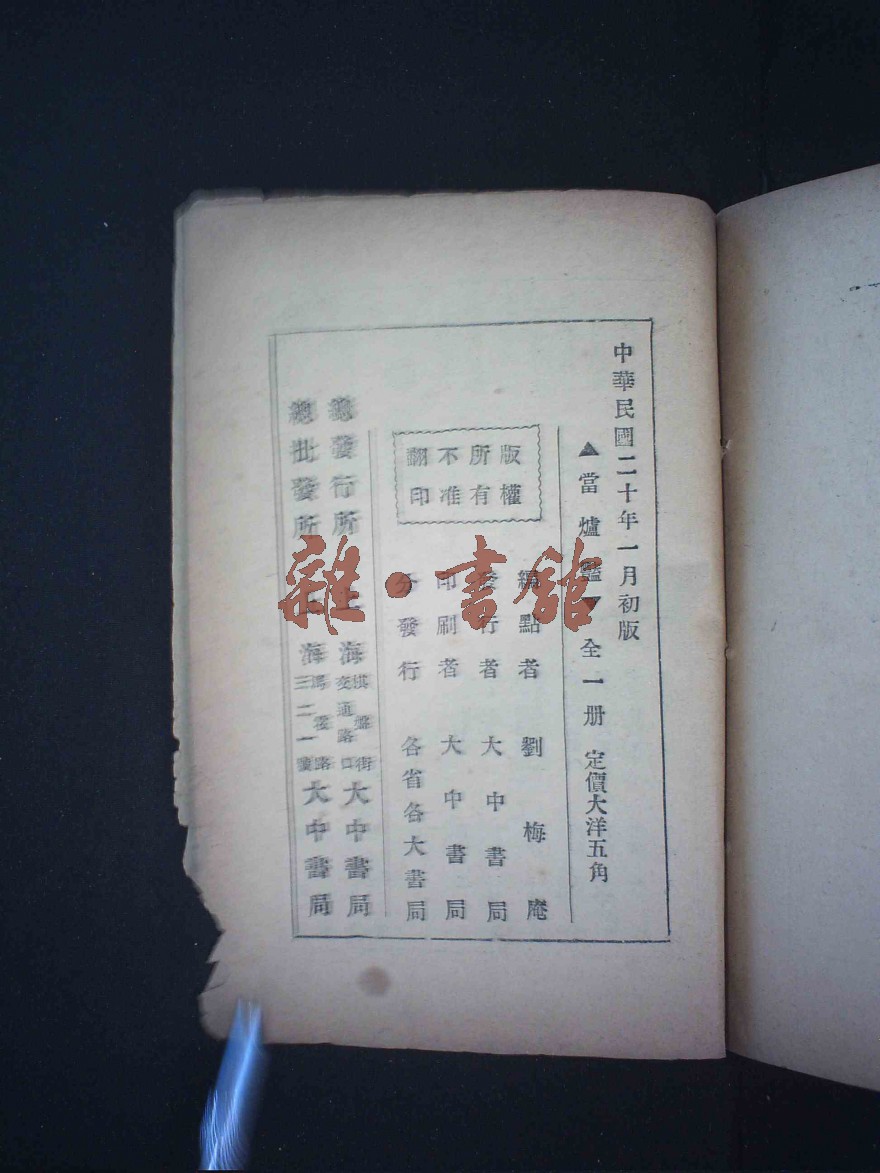 中華民國二十年一月初版
▲當爐豔▼全一册 定價大洋五角
版權
所有
不准
翻印
編點者 劉梅庵
發行者 大中書局
印刷者 大中書局
分發行 各省各大書局
總發行所 上海棋盤街交通路口大中書局
總批發所 上海路三二一號大中書局
雜·書舘